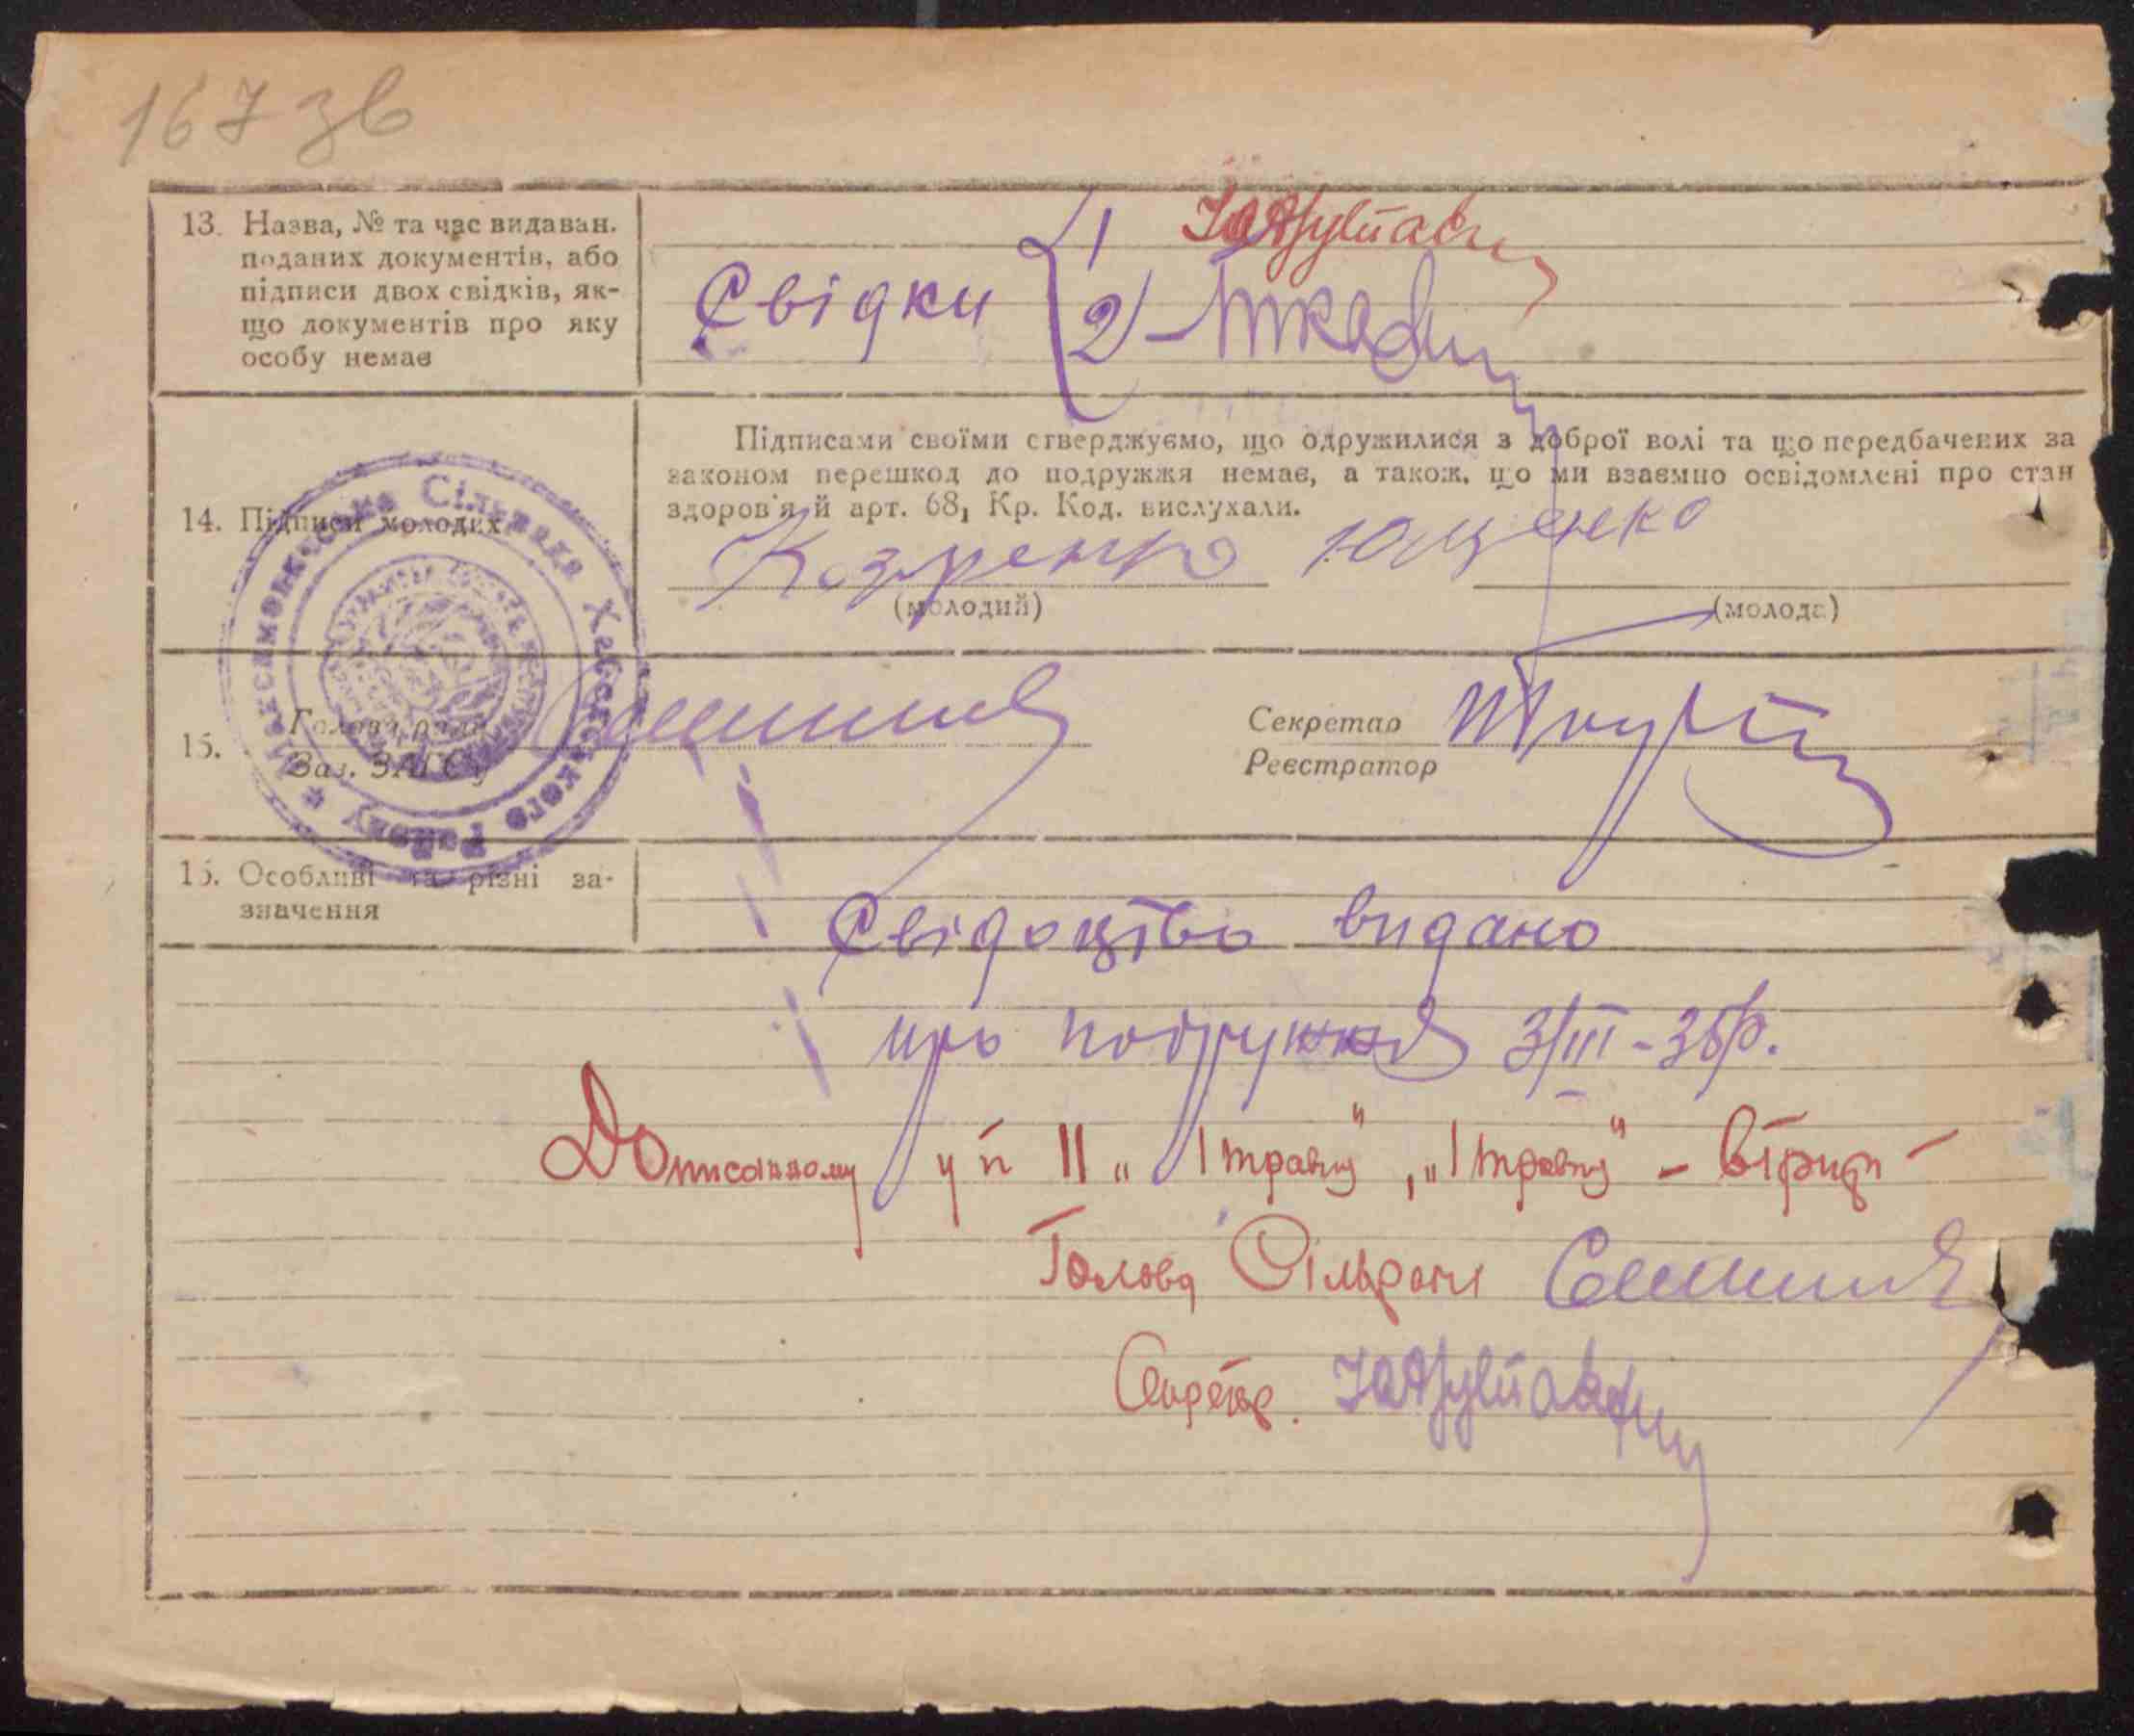 167 зв
13. Назва, № та час видаван.
поданих документів, або
підписи двох свідків, як-
що документів про яку
особу немає
Свідки
1
2)
14. Підписи молодих
Підписами своїми стверджуємо, що одружилися з доброї волі та що передбачених за
законом перешкод до подружжя немає, а також, що ми взаємно освідомлені про стан
здоров'я й арт. 68, Кр. Код. вислухали.
Ющенко
(молодий)
(молода)
Сільрада
Району
15. Голова ради
Зав. ЗАГС'у
Секретар
Реєстратор
15. Особливі та різні за-
значення
Свідоцтво видано
про подружжя 3/III-35р.
Дописанному у п 11 „1 травня", „1 травня" - вірити -
Голова Сільради
Секретар.